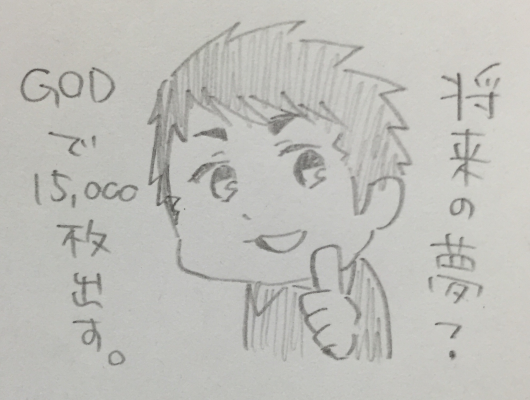 将来の夢？
GODで15,000枚出す。